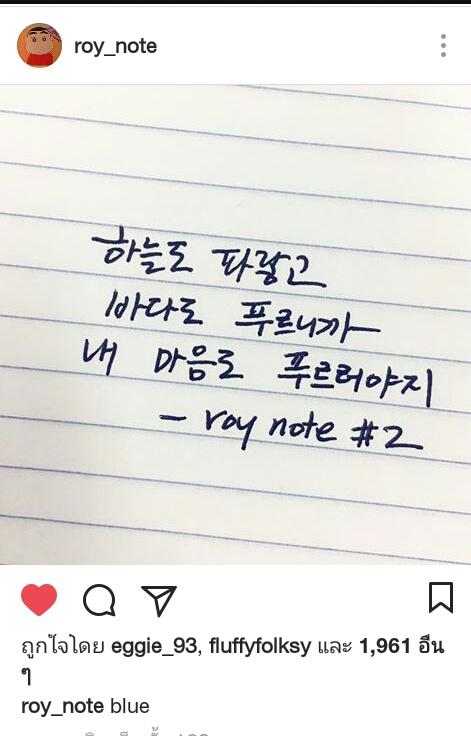 roy_note
하늘도 파랗고
바다도 푸르니까
내 마음도 푸르러야지
- roy note #2
ถูกใจโดย eggie_93, fluffyfolksy และ 1,961 อื่น
ๆ
roy_note blue